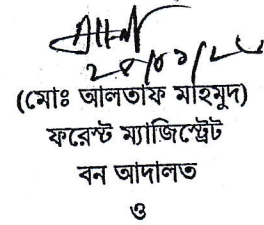 (মোঃ আলতাফ মাহমুদ)
ফরেস্ট ম্যাজিস্ট্রেট
বন আদালত
ও